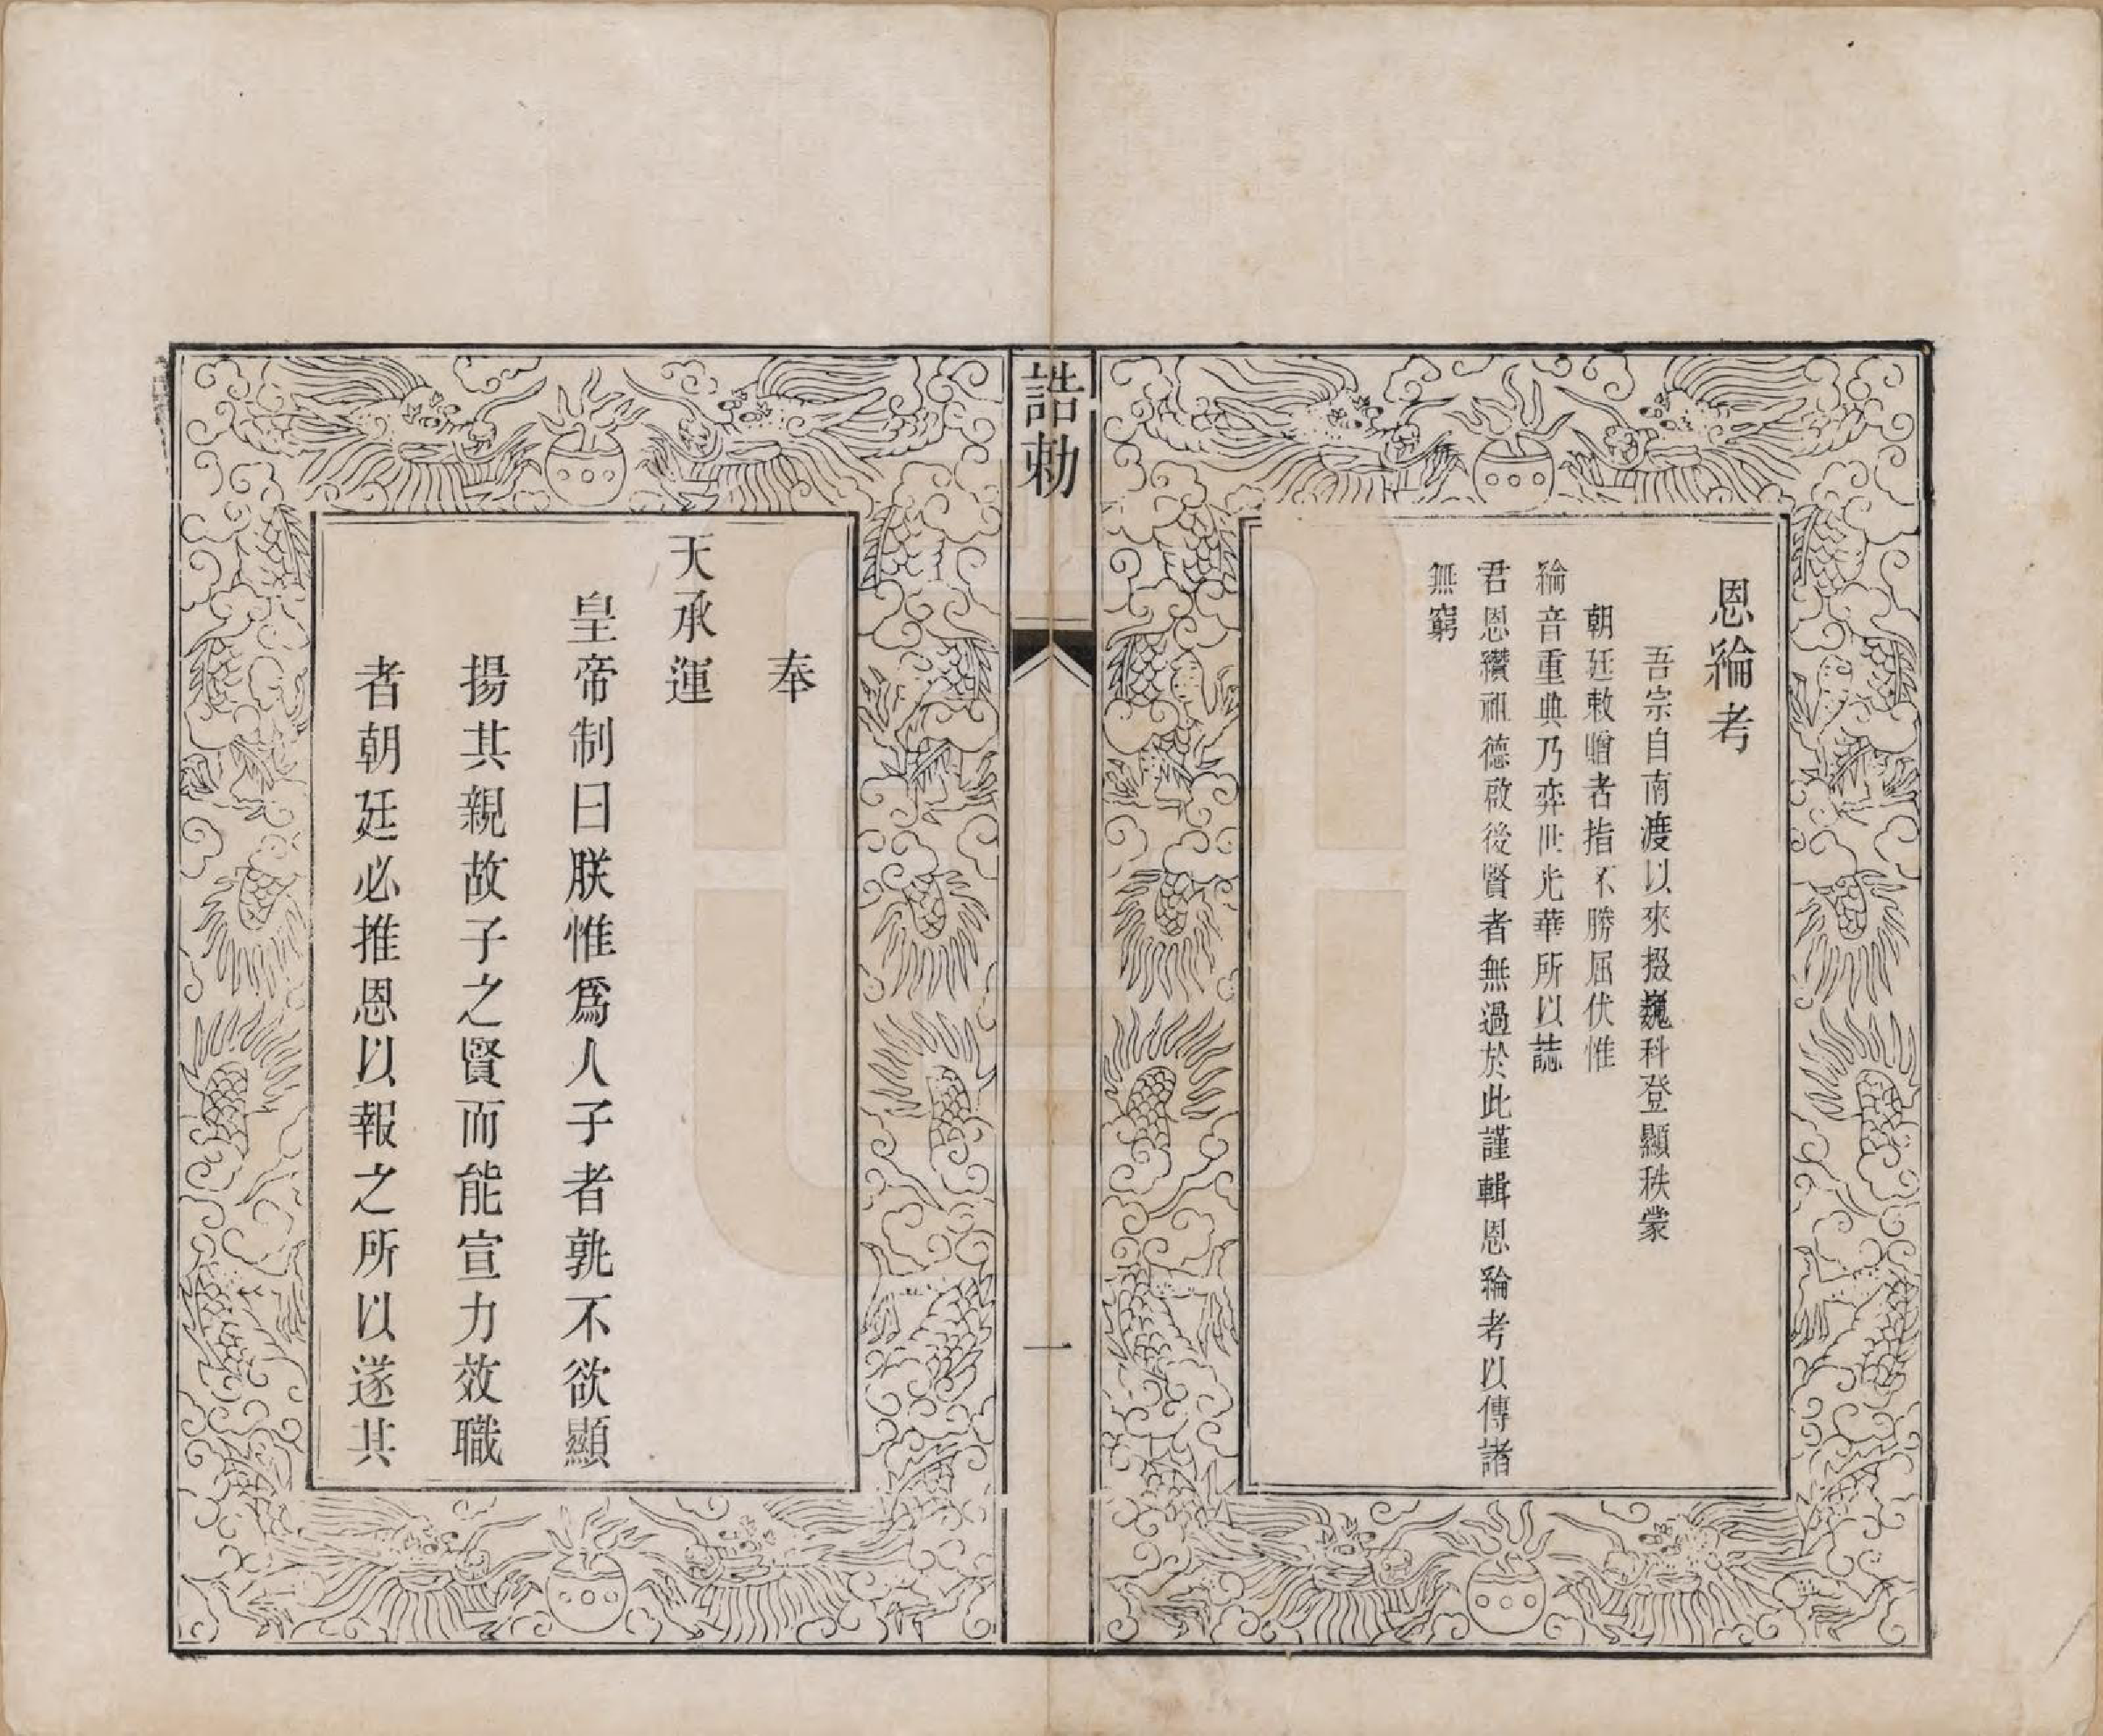 恩綸考
吾宗自南渡以來掇巍科登顯秩蒙
朝廷敕贈者指不勝屈伏惟
綸音重典乃弈世光華所以誌
君恩纘祖德啟後賢者無過於此謹輯恩綸考以傳諸
無窮
誥勅
一
奉
天承運
皇帝制曰朕惟爲人子者孰不欲顯
揚其親故子之賢而能宣力效職
者朝廷必推恩以報之所以遂其